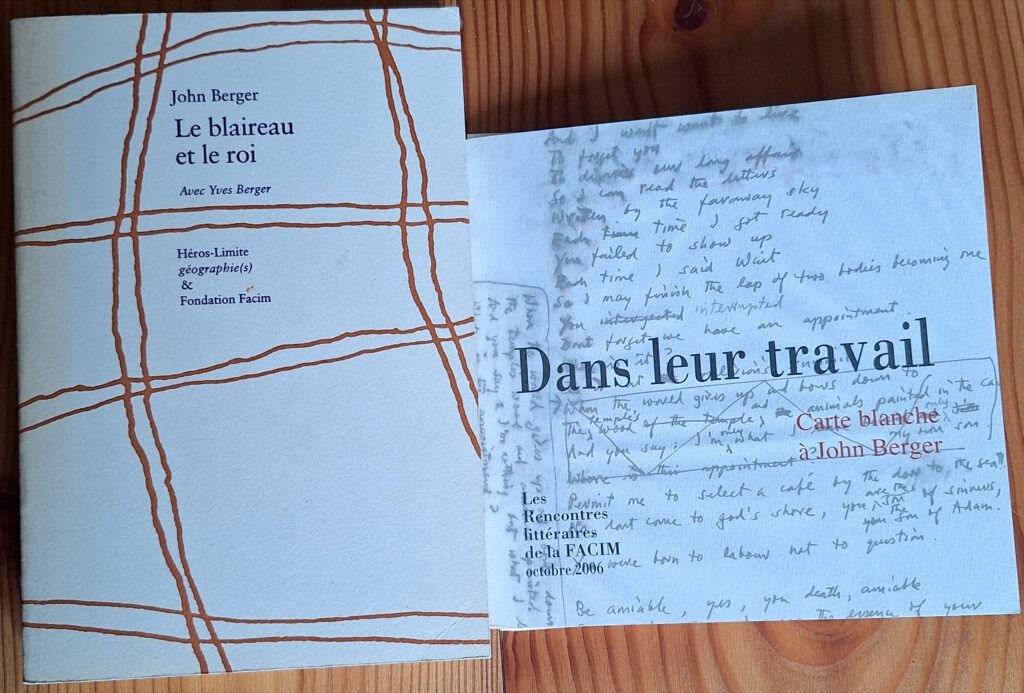 John Berger
Le blaireau
et le roi
Avec Yves Berger
Héros-Limite
géographie(s)
&
Fondation Facim
And I want want to live
To forget you
To dismiss our long affair
So I can read the letters
Written by the faraway sky
Each time I got ready
You failed to show up
Each time I said Wait
So I may finish the lap of two bodies becoming one
You interjected interrupted
Dont forget we have an appointment.
Dans leur travail
When the world gives up and bows down to
The wood of the temple, temple's and animals painted in the
And you say: I'm only what my own son.
Where is this appointment
Carte blanche
à John Berger
Permit me to select a café by the door to the sea?
You dont come to god's shore, you are the son of sinners,
you the son of Adam.
You were born to labour not to question.
Les
Rencontres
littéraires
de la FACIM
octobre 2006
Be amiable, yes, you death, amiable
the essence of your
When the world gives up and down
the temple's wood and painted
And you say: I'm nothing but what I